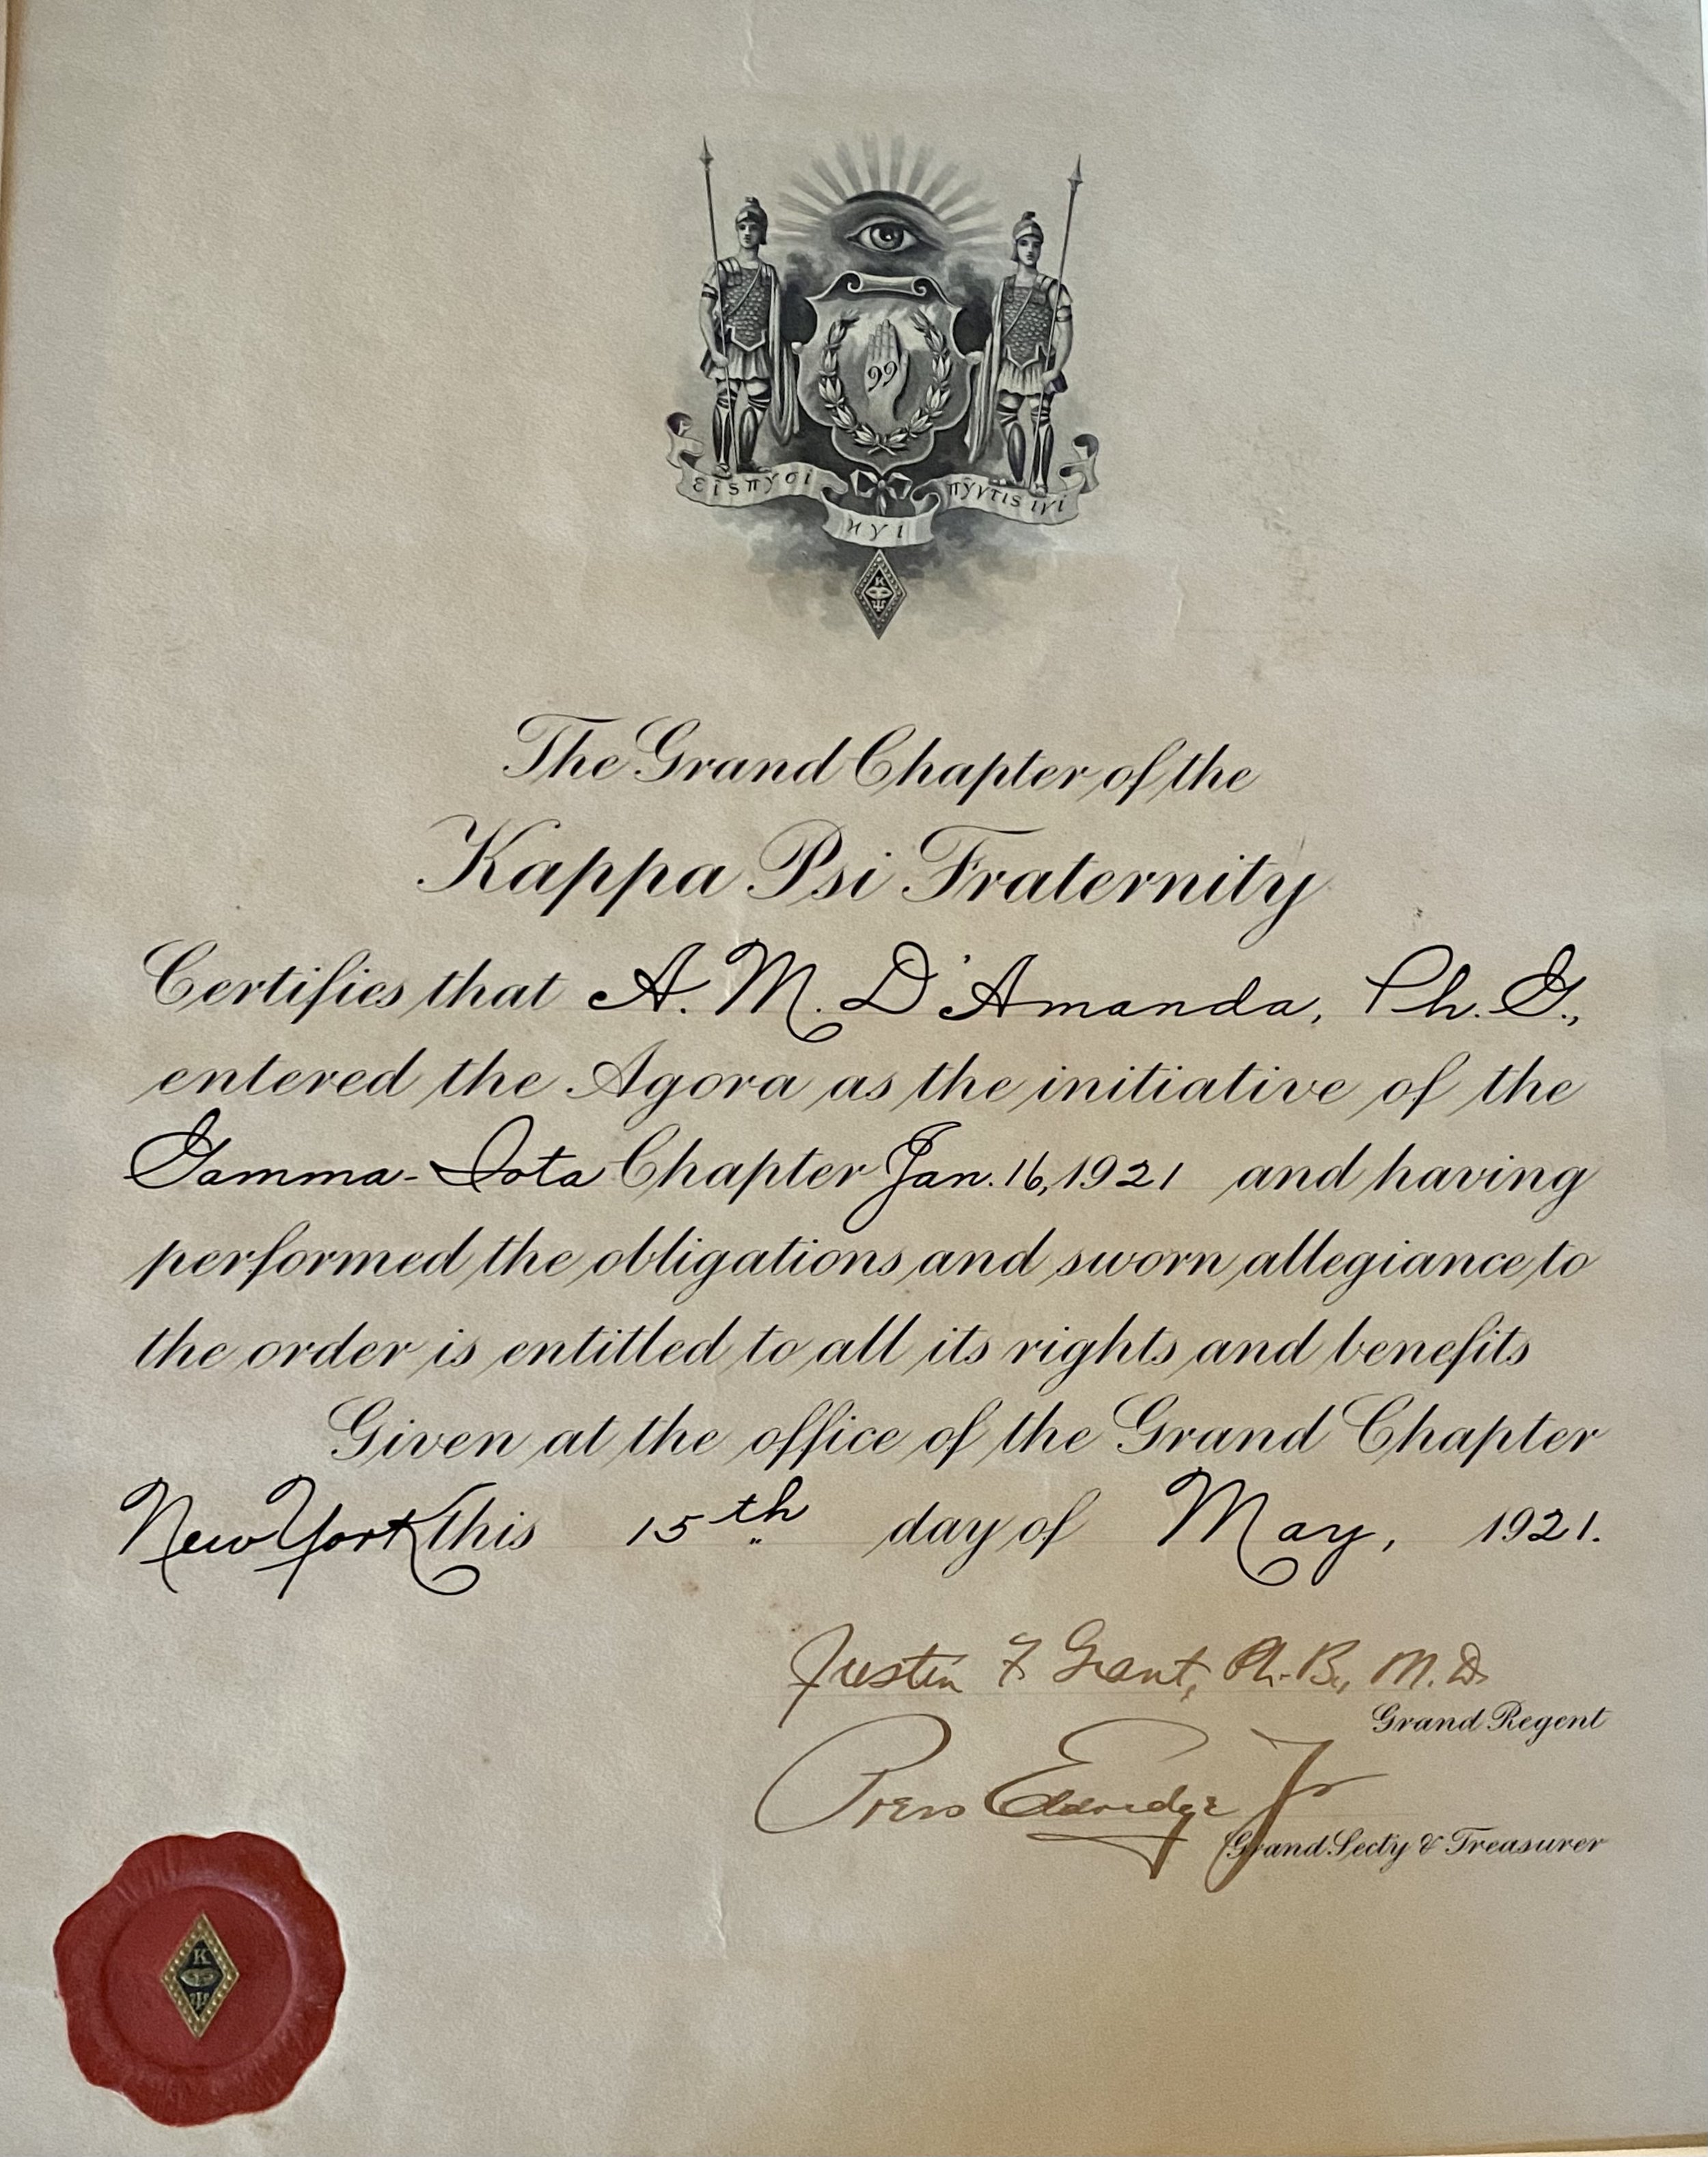 99
εισπγσι
ηγι
πγντις ινι
Κ
Ψ
The Grand Chapter of the
Kappa Psi Fraternity
Certifies that A. M. D'Amanda, Ph. G.,
entered the Agora as the initiative of the
Gamma-Iota Chapter Jan. 16, 1921 and having
performed the obligations and sworn allegiance to
the order is entitled to all its rights and benefits
Given at the office of the Grand Chapter
New York this 15th day of May, 1921.
Justin F Grant, Ph.B., M.D.
Grand Regent
Eldredge Jr
Grand Secty & Treasurer
K
Ψ